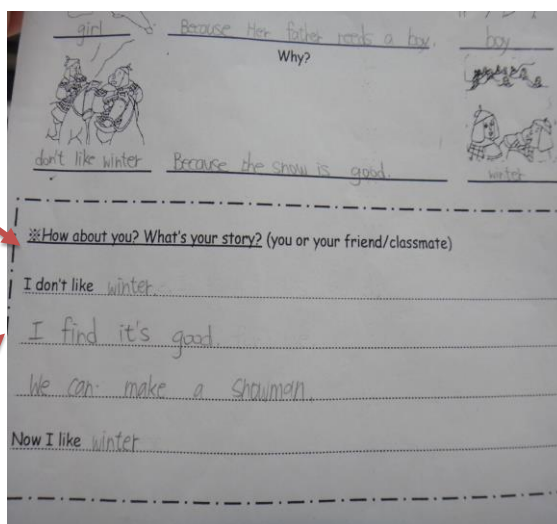 girl Because Her father needs a boy. boy
Why?
don't like winter Because the snow is good. winter
※How about you? What's your story? (you or your friend/classmate)
I don't like winter.
I find it's good.
We can make a snowman.
Now I like winter